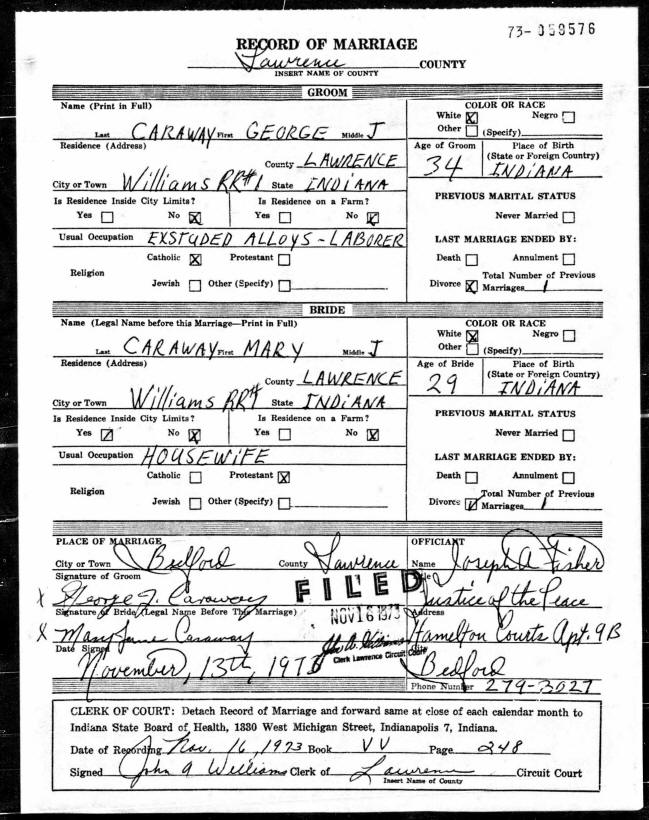 73-058576
RECORD OF MARRIAGE
Lawrence COUNTY
INSERT NAME OF COUNTY
GROOM
Name (Print in Full)
Last CARAWAY First GEORGE Middle J
COLOR OR RACE
White X Negro
Other (Specify)
Residence (Address)
County LAWRENCE
City or Town Williams RR#1 State INDIANA
Age of Groom 34
Place of Birth
(State or Foreign Country)
INDIANA
Is Residence Inside City Limits? Is Residence on a Farm?
Yes No X Yes No X
PREVIOUS MARITAL STATUS
Never Married
Usual Occupation EXSTUDED ALLOYS - LABORER
LAST MARRIAGE ENDED BY:
Religion
Catholic X Protestant
Jewish Other (Specify)
Death Annulment
Divorce X Total Number of Previous
Marriages 1
BRIDE
Name (Legal Name before this Marriage—Print in Full)
Last CARAWAY First MARY Middle J
COLOR OR RACE
White X Negro
Other (Specify)
Residence (Address)
County LAWRENCE
City or Town Williams RR# State INDIANA
Age of Bride 29
Place of Birth
(State or Foreign Country)
INDIANA
Is Residence Inside City Limits? Is Residence on a Farm?
Yes No X Yes No X
PREVIOUS MARITAL STATUS
Never Married
Usual Occupation HOUSEWIFE
LAST MARRIAGE ENDED BY:
Religion
Catholic Protestant X
Jewish Other (Specify)
Death Annulment
Divorce Total Number of Previous
Marriages 1
PLACE OF MARRIAGE
City or Town Bedford County Lawrence
OFFICIANT
Name Joseph A Fisher
Signature of Groom
X George J. Caraway
FILED
NOV 16 1973
Clerk Lawrence Circuit Court
Title
Justice of the Peace
Signature of Bride (Legal Name Before This Marriage)
X Mary Jane Caraway
Address
Hamelton Courts Apt. 9B
Date Signed
November, 13th, 1973
City
Bedford
Phone Number 279-3027
CLERK OF COURT: Detach Record of Marriage and forward same at close of each calendar month to
Indiana State Board of Health, 1330 West Michigan Street, Indianapolis 7, Indiana.
Date of Recording Nov. 16, 1973 Book VV Page 248
Signed John A Williams Clerk of Lawrence Circuit Court
Insert Name of County